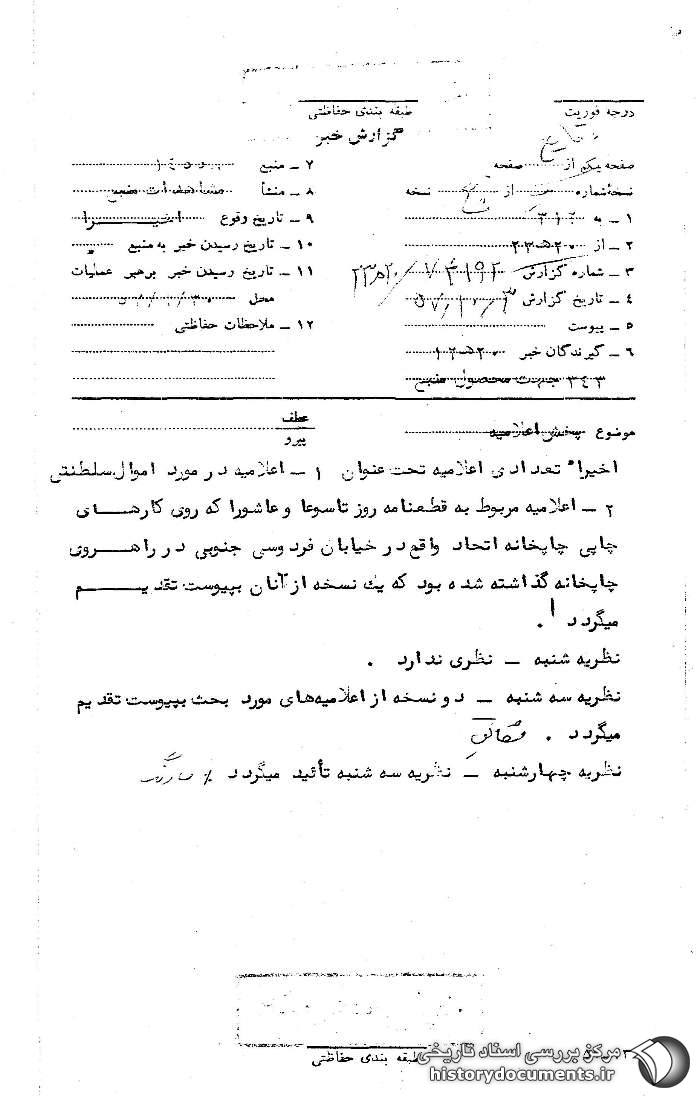 درجه فوریت
طبقه بندی حفاظتی
گزارش خبر
صفحه یکم از صفحه
نسخه شماره از نسخه
۱ ـ به ۳۱۲
۲ ـ از ۲۰ ه ۲۳
۳ ـ شماره گزارش
۴ ـ تاریخ گزارش
۵ ـ پیوست
۶ ـ گیرندگان خبر ۲۰ ه ۱۲
۳۴۳ جهت محصول منبع
۷ ـ منبع
۸ ـ منشأ مشاهدات منبع
۹ ـ تاریخ وقوع اخیرا
۱۰ ـ تاریخ رسیدن خبر به منبع
۱۱ ـ تاریخ رسیدن خبر برهبر عملیات
محل
۱۲ ـ ملاحظات حفاظتی
موضوع پخش اعلامیه
عطف
پیرو
اخیراً تعدادی اعلامیه تحت عنوان ۱ ـ اعلامیه در مورد اموال سلطنتی
۲ ـ اعلامیه مربوط به قطعنامه روز تاسوعا و عاشورا که روی کارهای
چاپی چاپخانه اتحاد واقع در خیابان فردوسی جنوبی در راهروی
چاپخانه گذاشته شده بود که یك نسخه از آنان بپیوست تقدیم
میگردد .
نظریه شنبه ـ نظری ندارد .
نظریه سه شنبه ـ دو نسخه از اعلامیه‌های مورد بحث بپیوست تقدیم
میگردد .
نظریه چهارشنبه ـ نظریه سه شنبه تأئید میگردد
طبقه بندی حفاظتی
مرکز بررسی اسناد تاریخی
historydocuments.ir